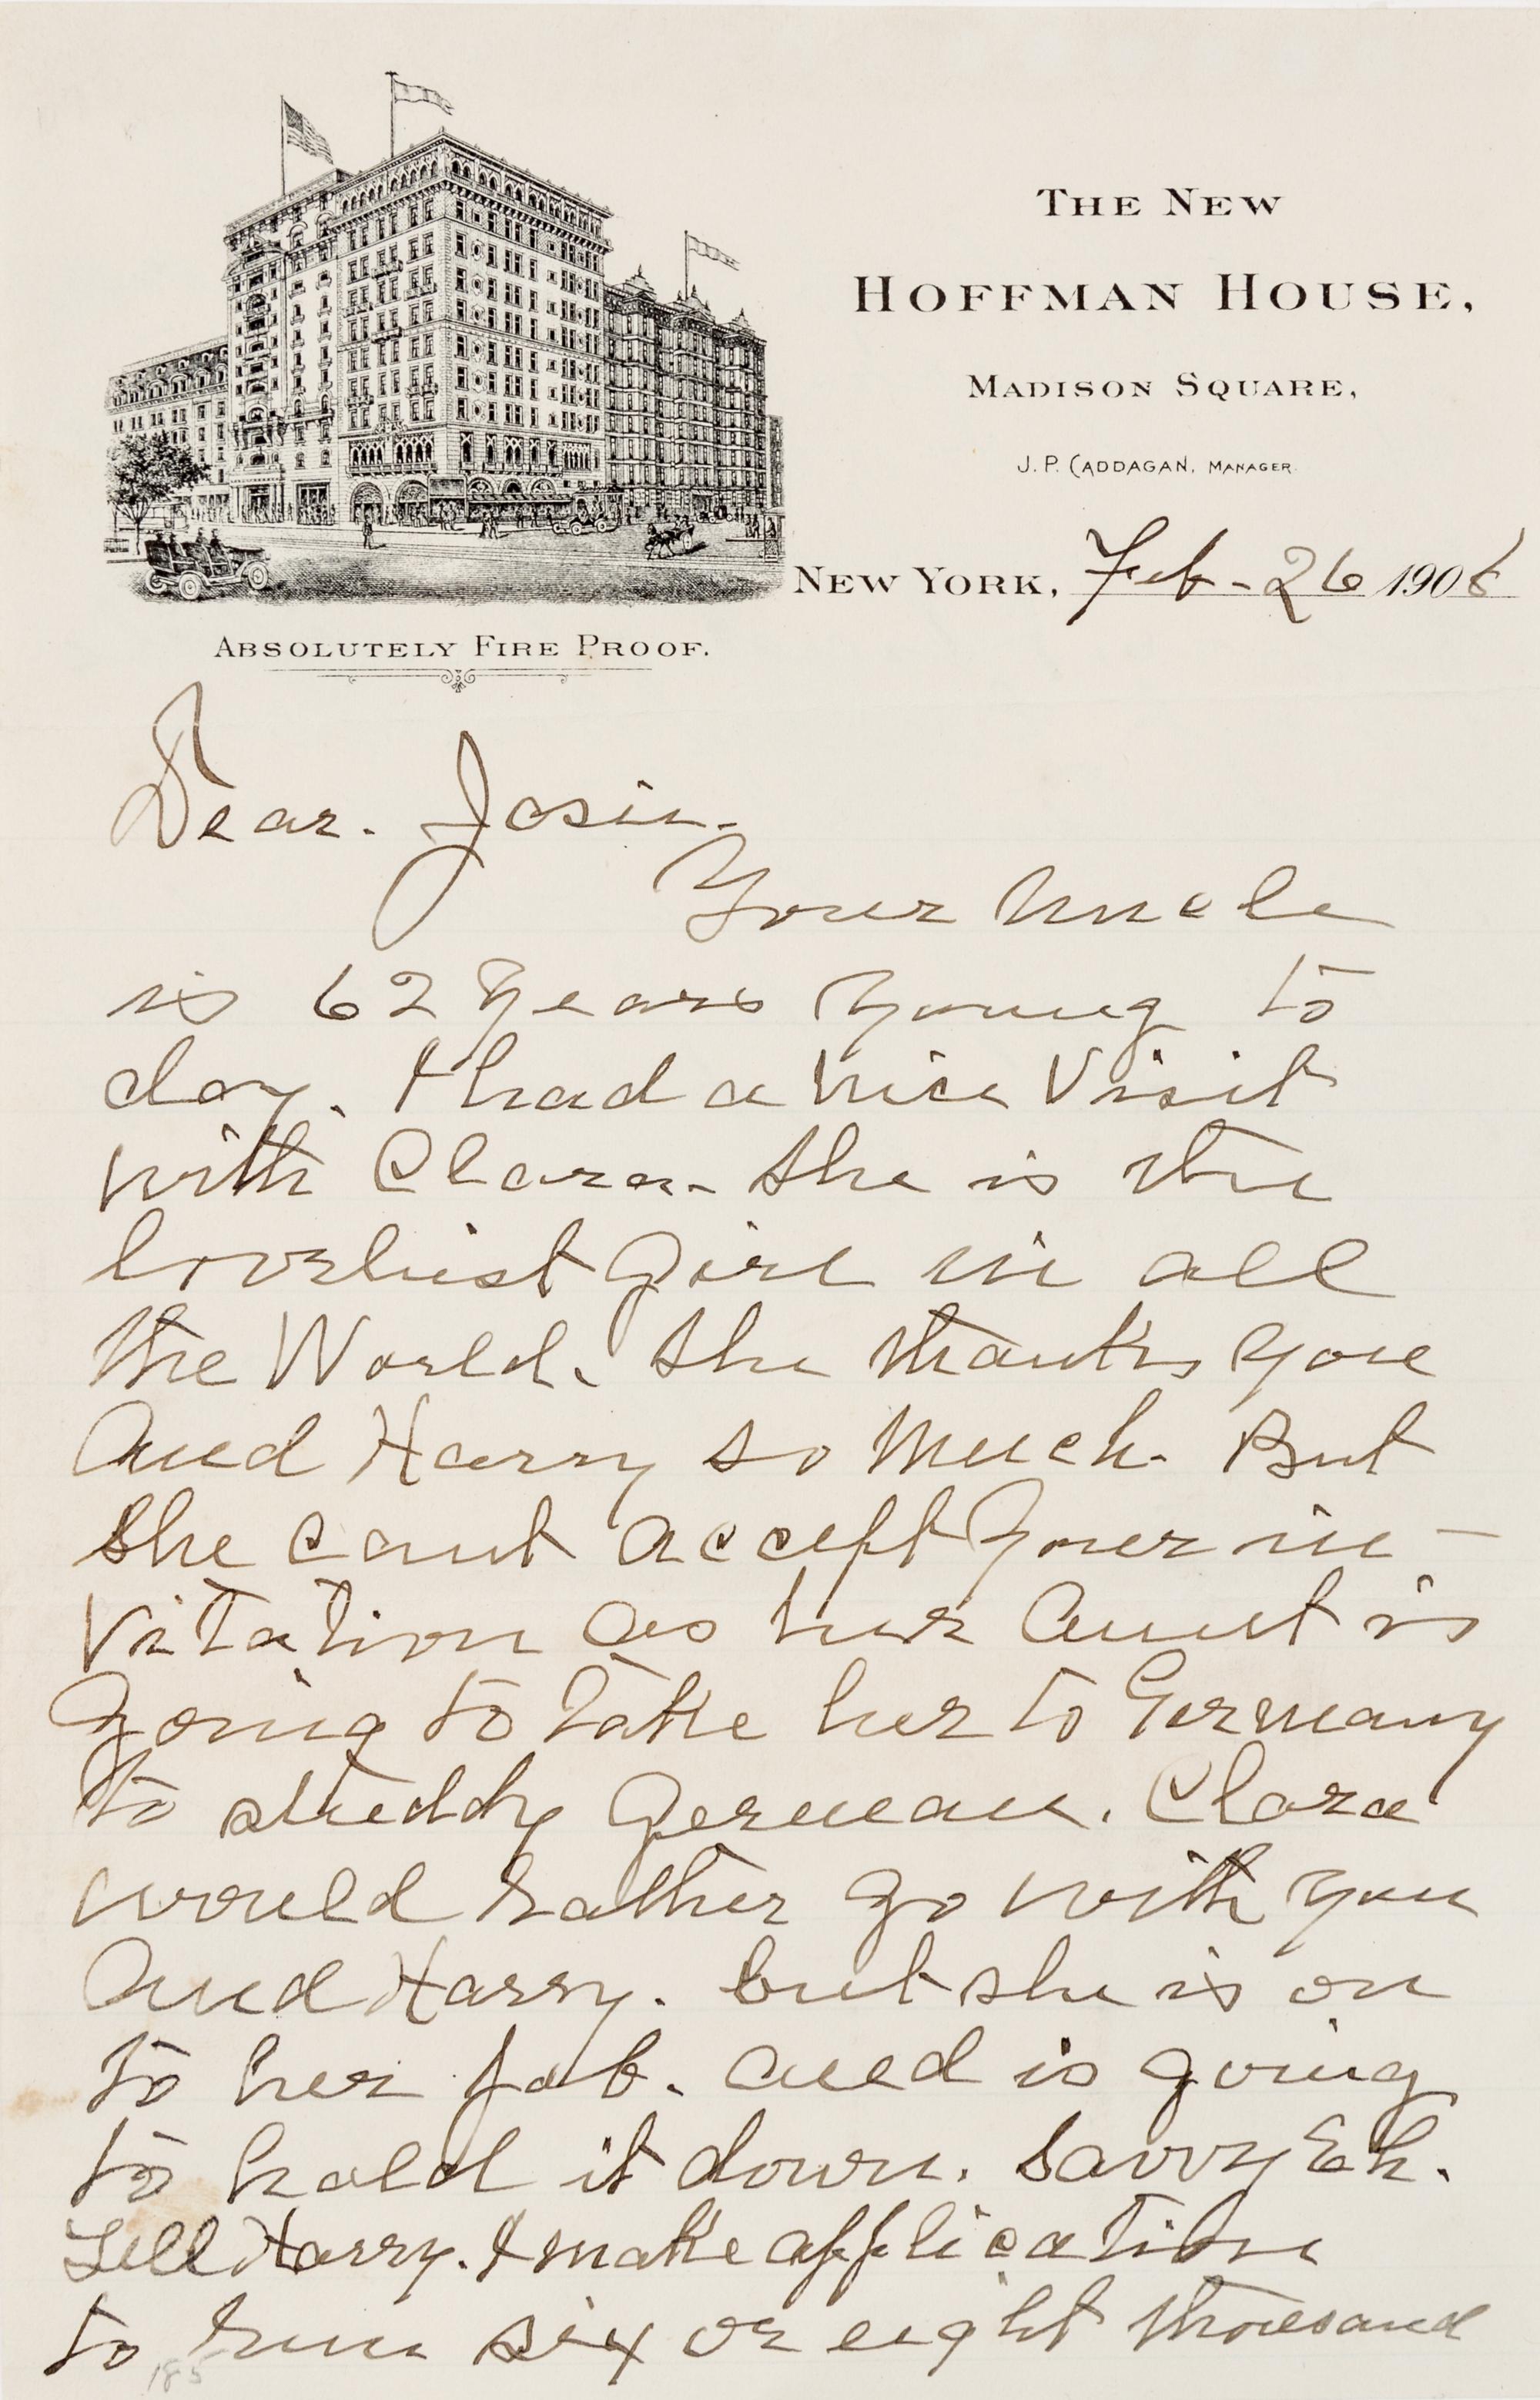 THE NEW
HOFFMAN HOUSE,
MADISON SQUARE,
J. P. CADDAGAN, MANAGER.
NEW YORK, Feb - 26 1908
ABSOLUTELY FIRE PROOF.
Dear. Josie.
Your Uncle
is 62 Years Young to
day. I had a Nice Visit
with Clara. She is the
lovliest Girl in all
the World. She thanks You
And Harry so Much. But
She cant accept Your in-
vitation as her Aunt is
Going to Take her to Germany
to studdy German. Clara
would rather go with You
And Harry. but she is on
to her Job. and is going
to hold it down. Savvy Eh.
Tell Harry. I make application
to run six or eight thousand
185